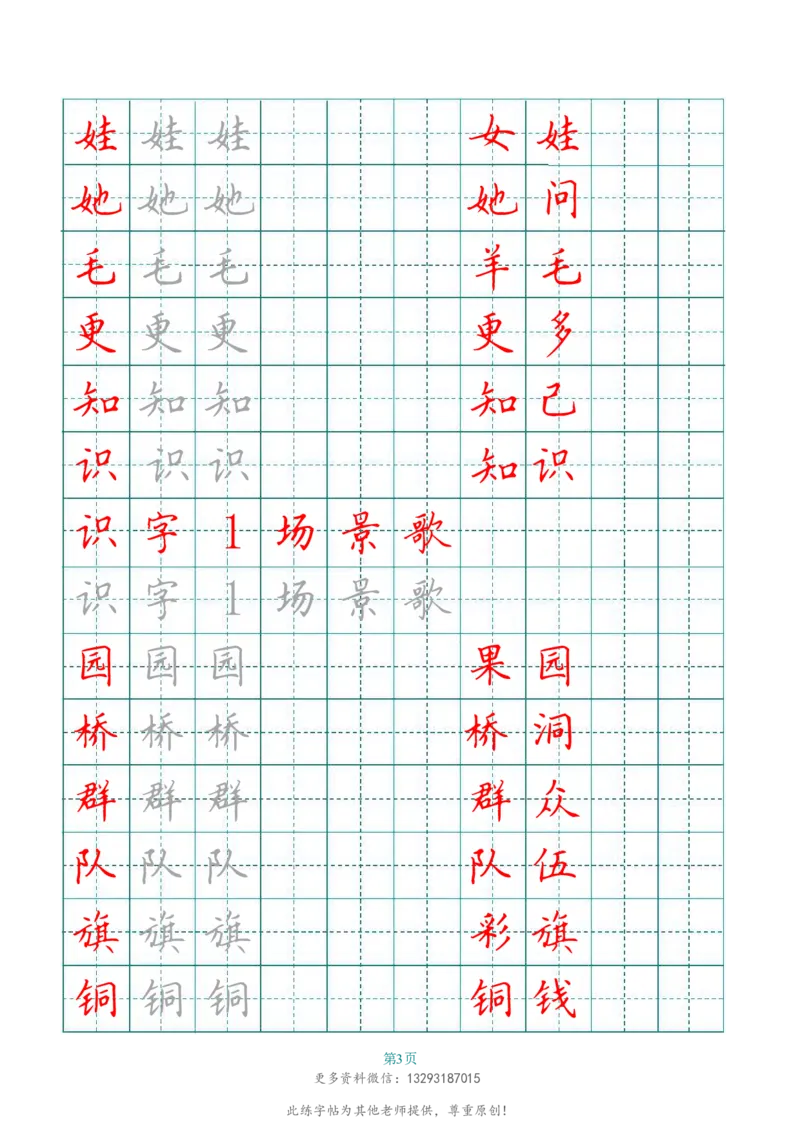 娃 娃 娃 女 娃
她 她 她 她 问
毛 毛 毛 羊 毛
更 更 更 更 多
知 知 知 知 己
识 识 识 知 识
识 字 1 场 景 歌
识 字 1 场 景 歌
园 园 园 果 园
桥 桥 桥 桥 洞
群 群 群 群 众
队 队 队 队 伍
旗 旗 旗 彩 旗
铜 铜 铜 铜 钱
第3页
更多资料微信：13293187015
此练字帖为其他老师提供，尊重原创！